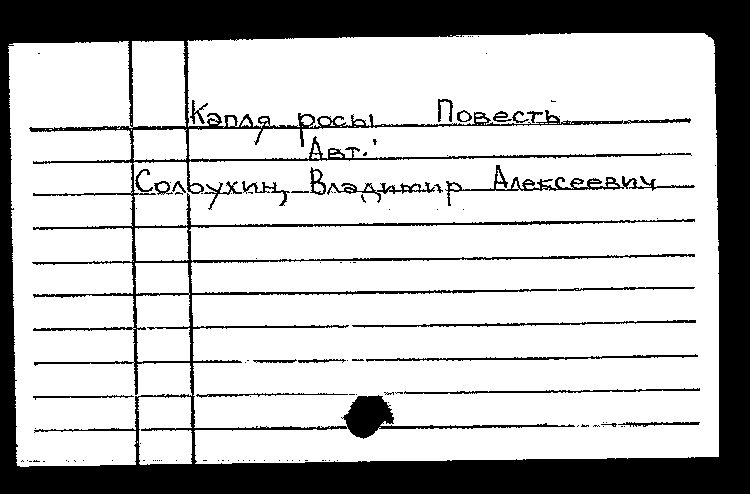 Капля росы Повесть
Авт.:
Солоухин, Владимир Алексеевич